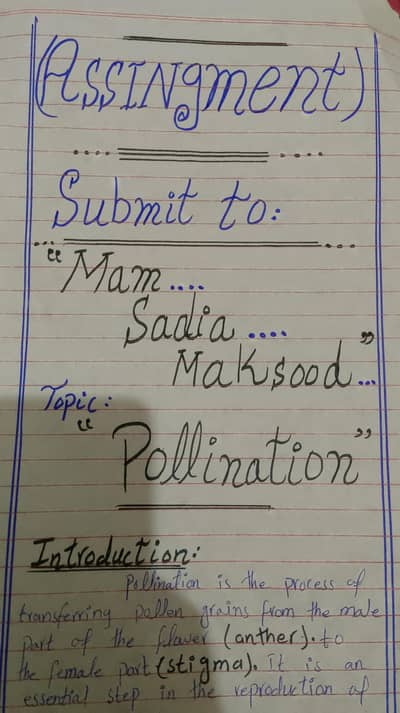 (Assingment)
Submit to:
"Mam....
Sadia....
Maksood..."
Topic:
"Pollination"
Introduction:
Pollination is the process of
transferring pollen grains from the male
part of the flower (anther). to
the female part (stigma). It is an
essential step in the reproduction of